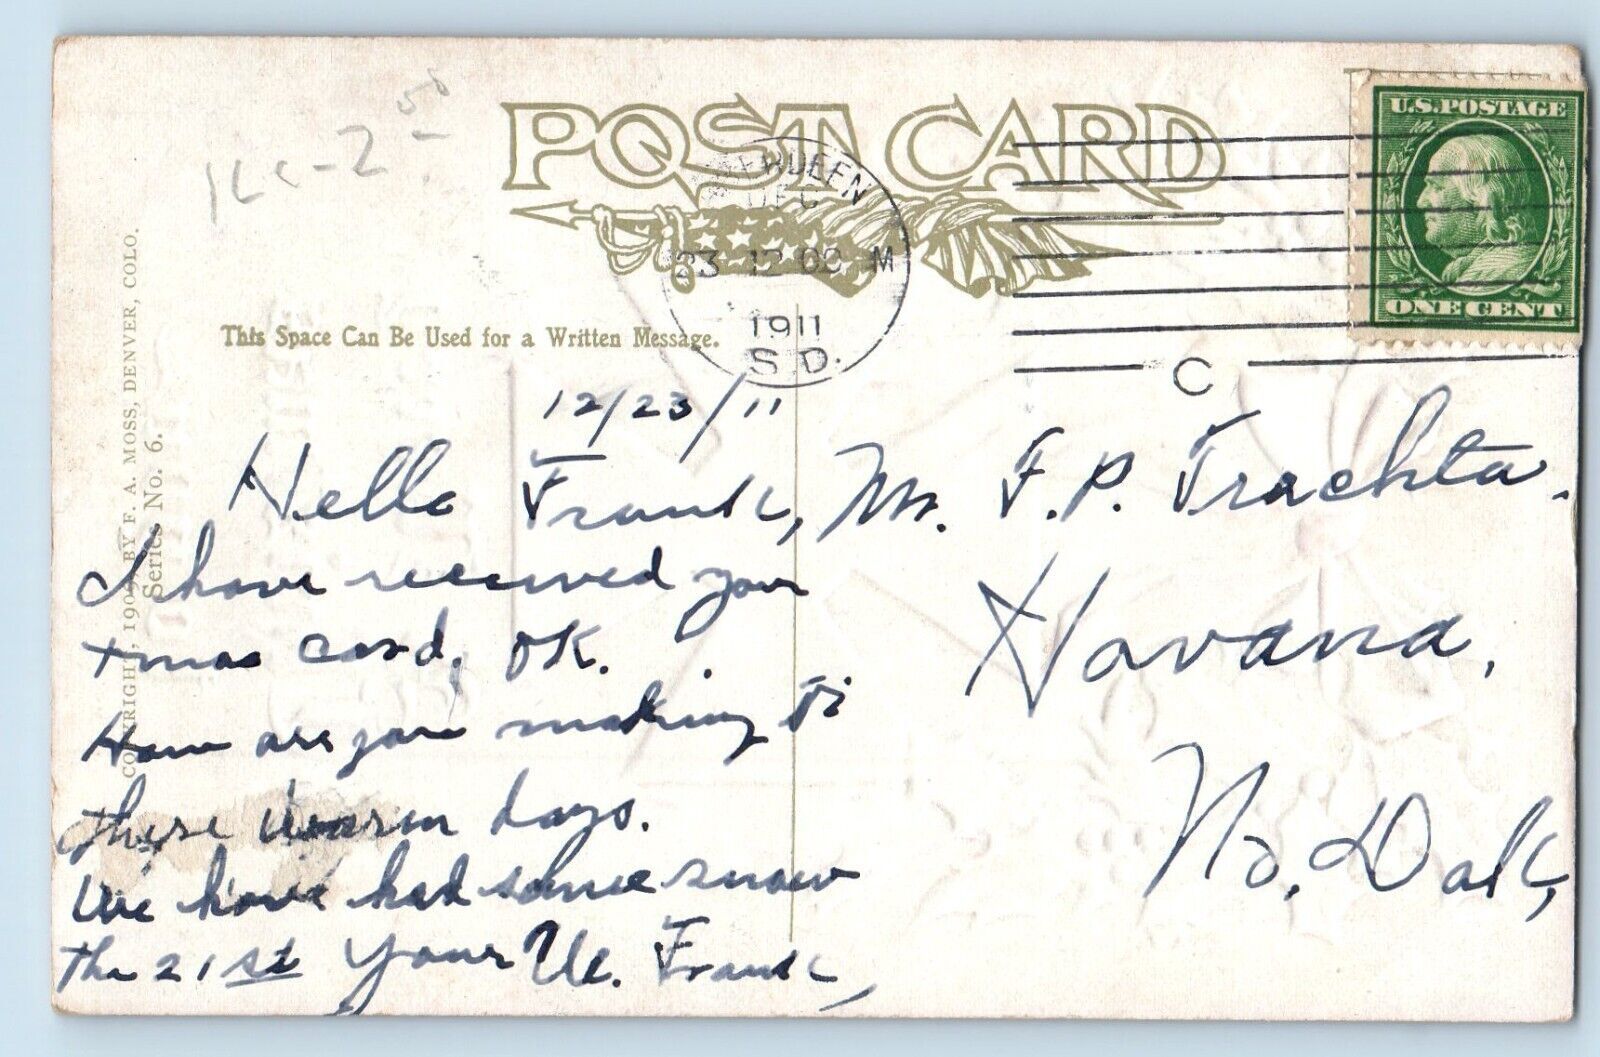 POST CARD
U.S. POSTAGE
ONE CENT
ABERDEEN
DEC
23 12 00 M
1911
S.D.
C
This Space Can Be Used for a Written Message.
COPYRIGHT, 1909, BY F. A. MOSS, DENVER, COLO.
Series No. 6.
12/23/11
Hello Frank,
I have received your
xmas card, OK.
How are you making it
these warm days.
We have had some snow
the 21st Your Un. Frank,
Mr. F. P. Trachta.
Havana,
No. Dak,